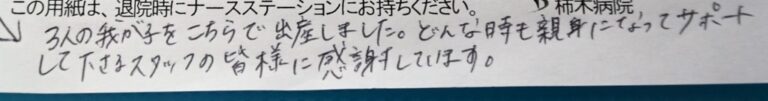 この用紙は、退院時にナースステーションにお持ちください。 柿木病院
3人の我が子をこちらで出産しました。どんな時も親身になってサポート
して下さるスタッフの皆様に感謝しています。